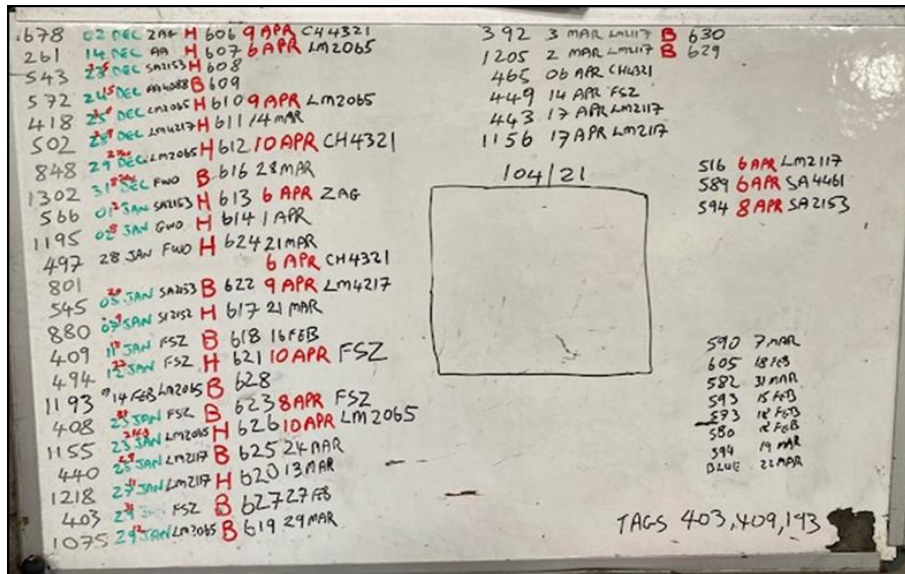 678 02 DEC ZAG H 606 9 APR CH4321
261 14 DEC AA H 607 6 APR LM2065
543 DEC SA2153 H 608
572 24 DEC AA4088 B 609
418 25 DEC LM2065 H 610 9 APR LM2065
502 28 DEC LM4217 H 611 14 MAR
848 29 DEC LM2065 H 612 10 APR CH4321
1302 31 DEC FWO B 616 28 MAR
566 01 JAN SA2153 H 613 6 APR ZAG
1195 02 JAN GWO H 614 1 APR
497 28 JAN FWO H 624 21 MAR
801 6 APR CH4321
545 05 JAN SA2153 B 622 9 APR LM4217
880 07 JAN S12152 H 617 21 MAR
409 11 JAN FSZ B 618 16 FEB
494 12 JAN FSZ H 621 10 APR FSZ
1193 14 FEB LM2065 B 628
408 23 JAN FSZ B 623 8 APR FSZ
1155 23 JAN LM2065 H 626 10 APR LM2065
440 25 JAN LM2117 B 625 24 MAR
1218 27 JAN LM2117 H 620 13 MAR
403 29 FSZ B 627 27 FEB
1075 29 JAN LM2065 B 619 29 MAR
392 3 MAR LM2117 B 630
1205 2 MAR LM2117 B 629
465 06 APR CH4321
449 14 APR FSZ
443 17 APR LM2117
1156 17 APR LM2117
104/21
516 6 APR LM2117
589 6 APR SA4461
594 8 APR SA2153
590 7 MAR
605 18 FEB
582 31 MAR
593 15 FEB
573 18 FEB
580 18 FEB
594 19 MAR
BLUE 22 MAR
TAGS 403, 409, 193